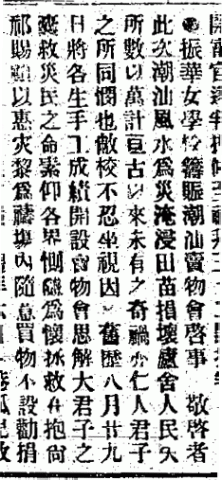 振華女學校籌賑潮汕賣物會啓事 敬啓者
此次潮汕風水爲災淹浸田苗損壞廬舍人民失
所數以萬計亘古以來未有之奇禍仁人君子
之所同憫也敝校不忍坐視因舊歷八月廿九
日將各生手工成績開設賣物會思解大君子之
災救災民之命素仰各界惻隱爲懷拯救抱尙
祁賜顧以惠災黎爲禱塲內隨意買物不設勸捐